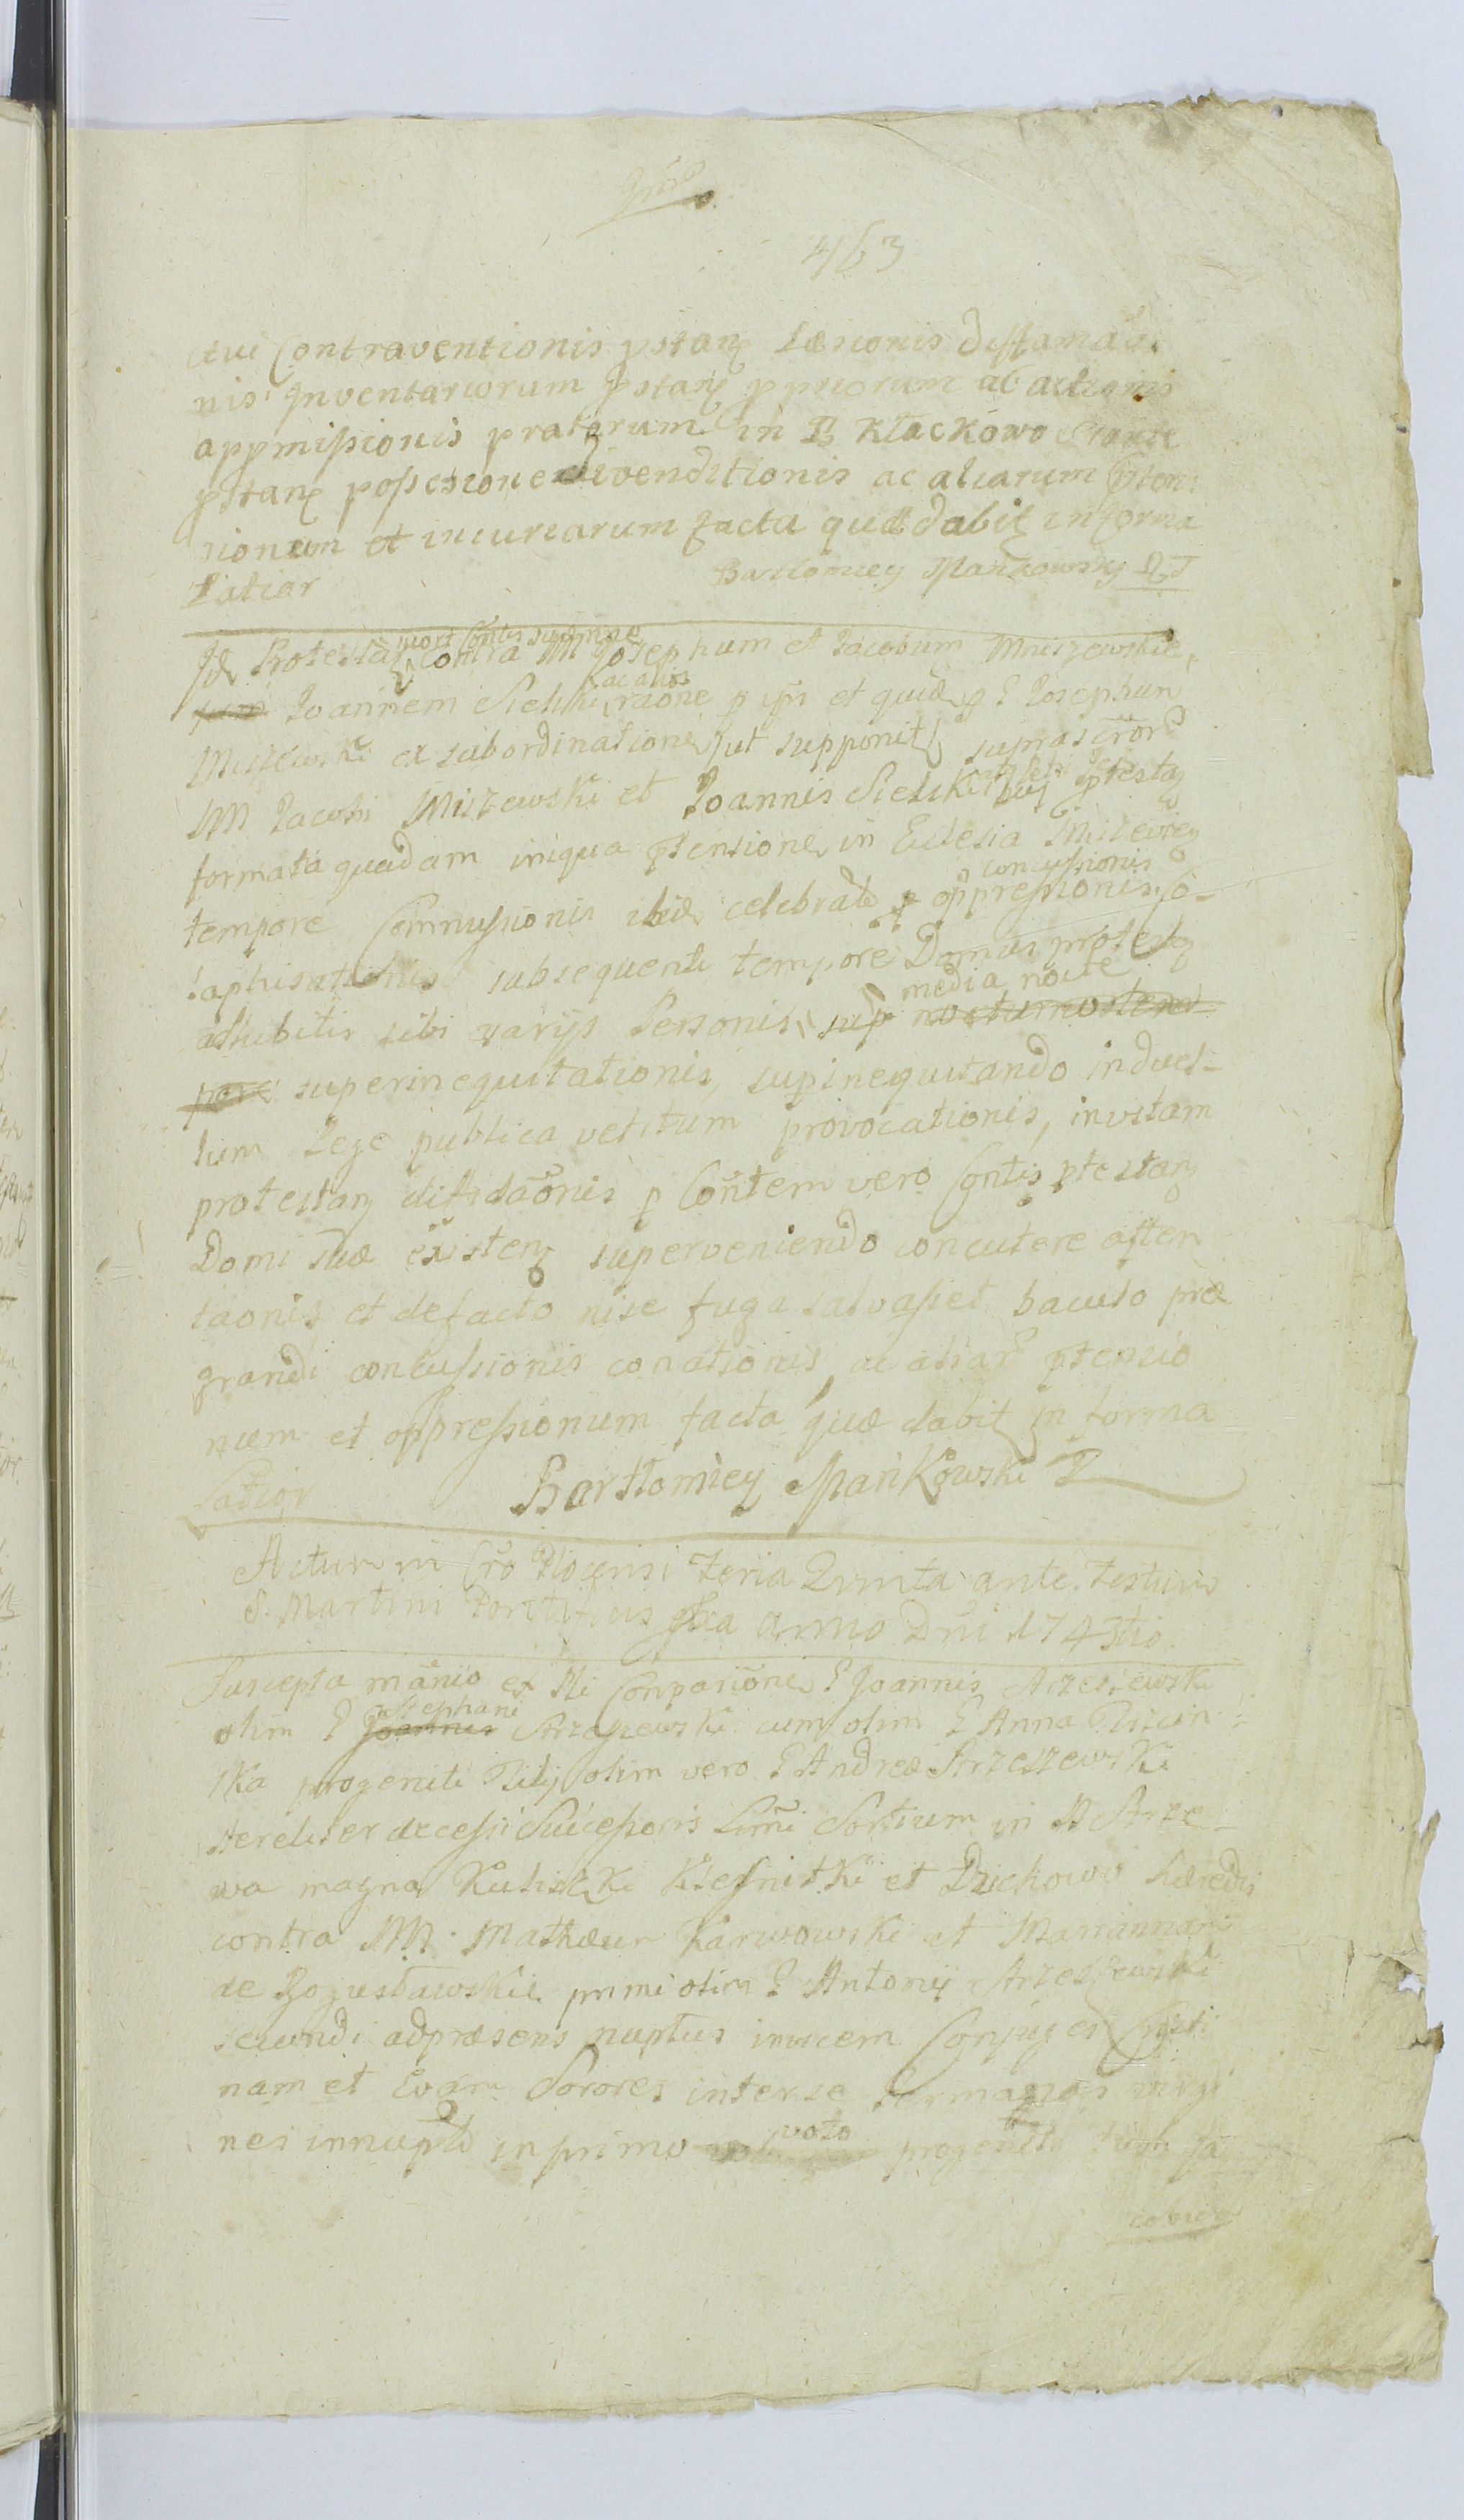 463
ctui Contraventionis pstanƺ Læsionis diffamaō
nis Inventariorum pstanƺ ppriorum ac actionis
appmissionis pratorum in B Kłackowo Stante
pstanƺ possessione divenditionis ac aliarum pten
sionum et iniuriarum facta quæ dabit in forma
Latior Bartłomiey Mańkowsky
Id Protestaƺ contra M Josephum et Jacobum Miszewskie
Joannem Sielski ac alios raōne p ips et quidē p G Josephum
Miszewski ex subordinatione (ut supponit) suprascror
MM Jacobi Miszewski et Joannis Sielski ptestaƺ
formata quadam iniqua ptensione in Eclesia Miszewieƺ
tempore Commissionis ibidē celebratæ concussionis oppressionis, co-
taphisationis subsequenti tempore Domus protestaƺ
adhibitis sibi varijs Personis media nocte sup nocturno tem
pore superinequitationis, supinequitando in duel-
lum Lege publica vetitum provocationis, invitam
protestanƺ diffidaōnis p Contem vero Contis ptestanƺ
Domi suæ existenƺ superveniendo concutere asten
taonis et defacto nise fuga salvasset baculo præ
grandi concussionis conationis, ac aliar ptensio
num et oppressionum facta quæ dabit in forma
Latior Bartłomiey Mańkowski
Actum in Cro Plocensi Feria Quinta ante Festum
S. Martini Pontificis pxa Anno Dni 1743tio
Suscepta manio ex Pli Comparione G Joannis Arzeszewski
olim G Joannis Stephani Arzeszewski cum olim G Anna
ska progeniti Filij olim vero G Andreæ Arzeszewski
steriliter decessi Successoris Simi Sortium in B Arze-
wa magna Kuliszki Klesnitki et Dzickowo Hæredis
contra MM Mathæum Karwowski et Mariannam
de Bogusławskie primi olim G Antonij Arzeszewski
secundi adpræsens nuptus invicem Conjuges
nam et Evam Sorores inter se Germanas virgi
nes innuptas in primo voto progenitas